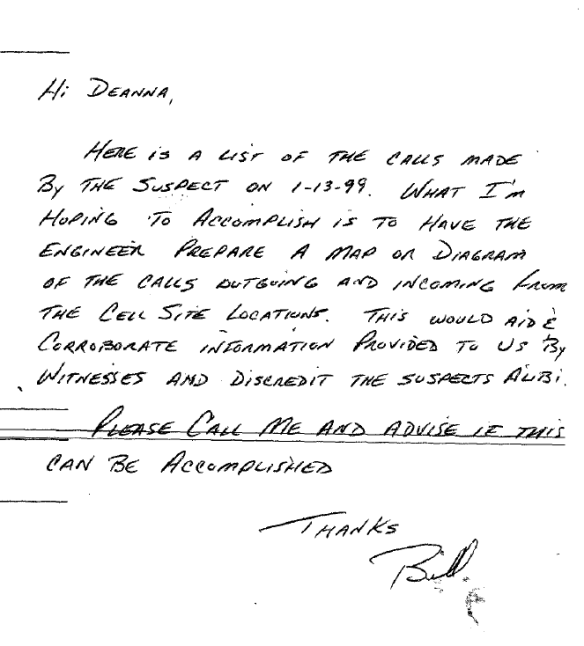 Hi DEANNA,
HERE IS A LIST OF THE CALLS MADE
By THE SUSPECT ON 1-13-99. WHAT I'm
HOPING TO ACCOMPLISH IS TO HAVE THE
ENGINEER PREPARE A MAP OR DIAGRAM
OF THE CALLS OUTGOING AND INCOMING FROM
THE CELL SITE LOCATIONS. THIS WOULD AID &
CORROBORATE INFORMATION PROVIDED TO US By
WITNESSES AND DISCREDIT THE SUSPECTS ALIBI.
PLEASE CALL ME AND ADVISE IF THIS
CAN BE ACCOMPLISHED
THANKS
Bill.